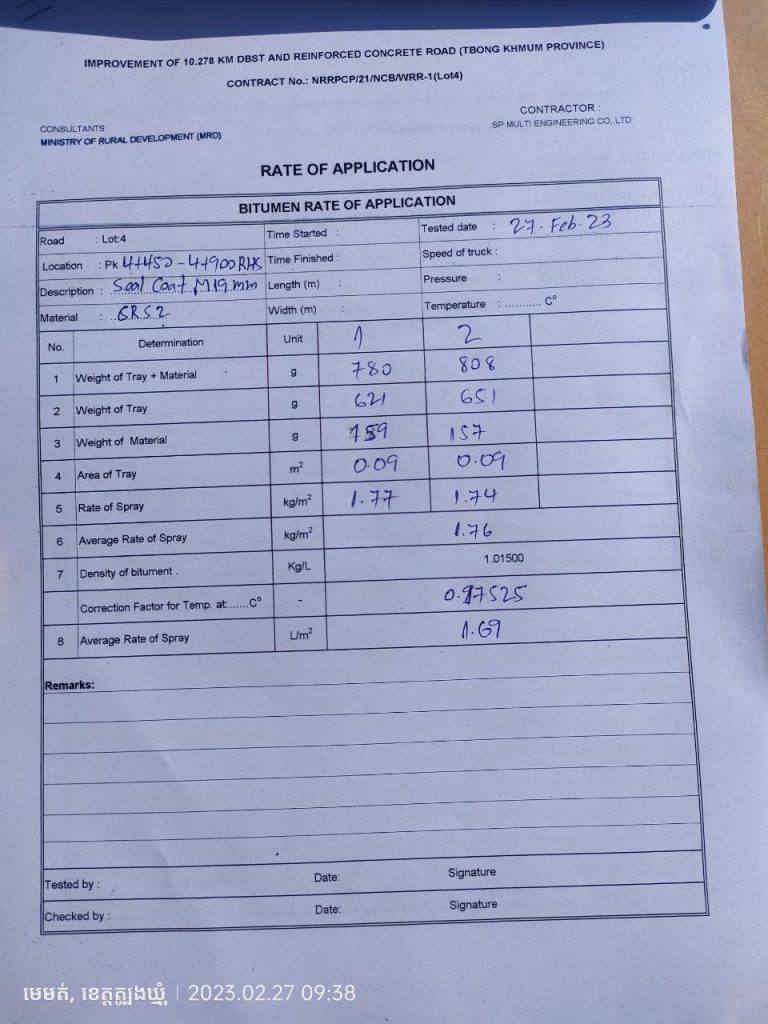 IMPROVEMENT OF 10.278 KM DBST AND REINFORCED CONCRETE ROAD (TBONG KHMUM PROVINCE)
CONTRACT No.: NRRPCP/21/NCB/WRR-1(Lot4)
CONTRACTOR :
CONSULTANTS: SP MULTI ENGINEERING CO,.LTD
MINISTRY OF RURAL DEVELOPMENT (MRD)
RATE OF APPLICATION
BITUMEN RATE OF APPLICATION
Road : Lot:4 Time Started : Tested date : 27. Feb. 23
Location : Pk 4+450 - 4+900 RHS Time Finished : Speed of truck :
Description : Seal Coat M19mm Length (m) : Pressure :
Material : CRS2 Width (m) : Temperature : ........... C°
No. Determination Unit 1 2
1 Weight of Tray + Material g 780 808
2 Weight of Tray g 621 651
3 Weight of Material g 159 157
4 Area of Tray m² 0.09 0.09
5 Rate of Spray kg/m² 1.77 1.74
6 Average Rate of Spray kg/m² 1.76
7 Density of bitument . Kg/L 1.01500
Correction Factor for Temp. at......C° - 0.97525
8 Average Rate of Spray L/m² 1.69
Remarks:
Tested by : Date: Signature
Checked by : Date: Signature
មេមត់, ខេត្តត្បូងឃ្មុំ | 2023.02.27 09:38